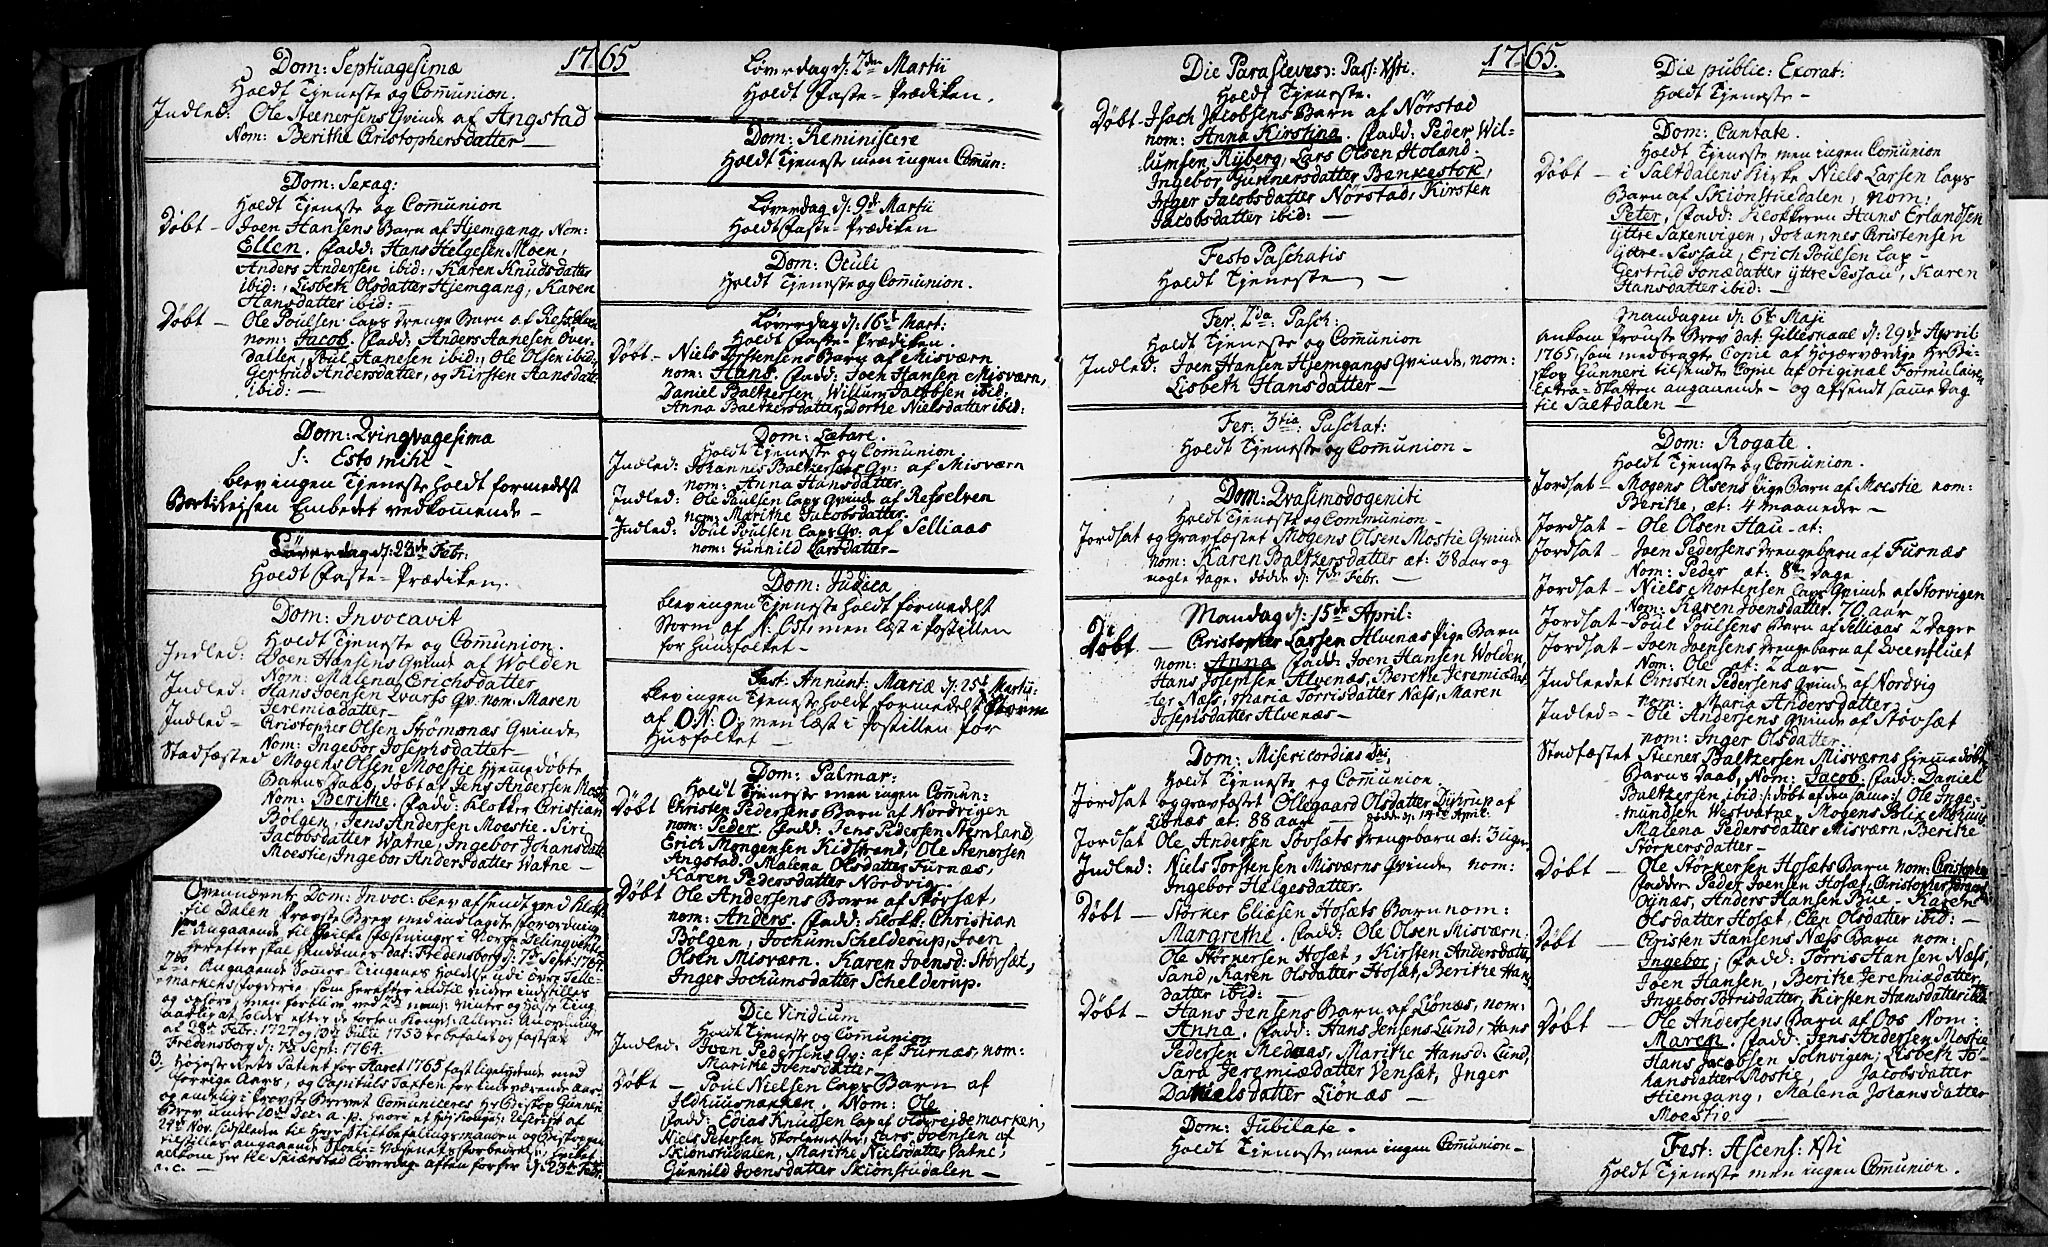 1765
Dom: Septuagesimæ
Holdt Tjeneste og Com̄union.
Indled: Ole Steenersens Qvinde af Angstad
Nom: Berithe Cristophersdatter —
Dom: Sexag:
Holdt Tjeneste og Com̄union
Døbt — Joen Hansens Barn af Hjemgang, Nom:
Ellen. Fadd: Hans Helgesen Moen,
Anders Andersen ibid:, Karen Knudsdatter
ibid:, Lisbeth Olsdatter Hjemgang, Karen
Hansdatter ibid: —
Døbt — Ole Poulsen Laps drenge Barn af
nom: Jacob. Fadd: Anders Hanesen Over-
dalen, Poul Hanesen ibid:, Ole Olsen ibid:
Gertrud Andersdatter, og Kirsten Hansdatter
ibid: —
Dom: Qvingvagesima
s: Esto mihi —
blev ingen Tjeneste holdt formedelst
Embedet vedkomende —
Løverdag d: 23de Febr:
Holdt Faste-Prædiken.
Dom: Invocavit
Holdt Tjeneste og Com̄union.
Indled: Joen Hansens Qvinde af Wolden
Nom: Malena Erichsdatter
Indled: Hans Joensen Qv: nom: Maren
Jeremiædatter —
Indled — Cristopher Olsen Strömsnæs Qvinde
Nom: Ingebor Josephsdatter —
Stadfæsted Mogens Olsen Moestie Hjem̄e døbte
Barns Daab, døbt af Jens Andersen Moestie
Nom: Berithe. Fadd: Klokker Cristian
Bölgen, Jens Andersen Moestie. Siri
Jacobsdatter Watne, Ingebor Johansdatter
Moestie, Ingebor Andersdatter Watne —
Ovennævnte Dom: Invoc: blev afsendt med
til Dalen Provste Brev med indlagde Forordning
1mo Angaaende til hvilke Fæstninger i Norge Delinqventer
herefter skal hendømes dat: Fredensborg d: 7de Sept: 1764.
2do Angaaende Som̄er-Tingenes Holdelse udi Øvre Telle-
markens Fogderie som herefter indtil videre indstilles
og ophöre, men forblive ved 2de nemlig: Vinter og Høste Ting
aarlig at holdes efter de forhen Kongel: Allern: Anordninger
af 28de Febr: 1727 og Julii 1753 er befalet og fastsat
Fredensborg d: 7de Sept: 1764.
3. Höieste Rets Patent for Aaret 1765 fast ligelydende med
forrige Aars, og Capituls Taxten for inneværende Aar
og endelig i Provste Brevet Com̄uniceres Hr Biskop Gunneri
Brev under 10de Dec: a. p. hvori et Høykongel: Rescript af
24de Nov: sidstleden til Herr Stiftbefalingsmanden og Biskoppen
tilstilles angaaende Skole-Væsenets forbedrelse, hvilket
alt kom her til Skiærstad Løverdags aften forhen d: 23de Febr:
a. c. —
Løverdag d: 2den Martii
Holdt Faste-Prædiken.
Dom: Reminiscere
Holdt Tjeneste men ingen Com̄un:
Løverdag d: 9de Martii
Holdt Faste-Prædiken
Dom: Oculi
Holdt Tjeneste og Com̄union.
Løverdag d: 16de Mart:
Holdt Faste-Prædiken.
Døbt — Niels Torstensens Barn af Misværn
nom: Hans. Fadd: Joen Hansen Misværn,
Daniel Baltzersen, Willum Jacobsen ibid:
Anna Baltzersdatter, Dorthe Nielsdatter ibid:
Dom: Lætare.
Holdt Tjeneste og Com̄union.
Indled: Johannes Baltzersens Qv: af Misværn
nom: Anna Hansdatter
Indled: Ole Poulsen Laps Qvinde af Resselven
nom: Marithe Jacobsdatter
Indled: Poul Poulsen Laps Qv: af Selliaas
nom: Gunnild Larsdatter —
Dom: Judica
blev ingen Tjeneste holdt formedelst
Storm af N: Ost, men læst i Postillen
for Huusfolket —
Fest: Annunt: Mariæ d: 25de Martii:
blev ingen Tjeneste holdt formedelst Storm
af O. N. O, men læst i Postillen for
Husfolket —
Dom: Palmar:
Holdt Tjeneste men ingen Com̄un:
Døbt Christen Pedersens Barn af Nordvigen
nom: Peder. Fadd: Jens Pedersen Stemland,
Erich Mongensen Kidstrand, Ole Stenersen
Angstad. Malena Olsdatter Furnæs,
Karen Pedersdatter Nordvig.
Døbt Ole Andersens Barn af Störsæt,
nom: Anders. Fadd: Klokk: Christian
Bölgen, Jochum Schelderup, Joen
Olsen Misværn. Karen Joensd: Störsæt,
Inger Jochumsdatter Schelderup.
Die Viridium
Holdt Tjeneste og Com̄union
Indled: Joen Pedersens Qv: af Furnæs, nom:
Marithe Ivensdatter
Døbt — Poul Nielsen Laps Barn af
Ildhuusnakken. Nom: Ole
Fadd: Edias Knudsen Lap af Oldereidemarken,
Niels Petersen Storlemester, Lars Joensen af
Skionstudalen, Marithe Nielsdatter Vatne,
Gunnild Ivensdatter Skionstudalen —
1765.
Die Parasceves: Pass: Xsti.
Holdt Tjeneste.
Døbt — Isach Jacobsens Barn af Nörstad
nom: Anna Kirstina. Fadd: Peder Wil-
lumsen Ryberg, Lars Olsen Holand.
Ingebor Gunnersdatter Benkestok,
Inger Jacobsdatter Nörstad, Kirsten
Jacobsdatter ibid: —
Festo Paschatis
Holdt Tjeneste —
Fer: 2da: Pasch:
Holdt Tjeneste og Com̄union
Indled: Joen Hansen Hjemgangs Qvinde, nom:
Lisbeth Hansdatter —
Fer: 3tia: Paschat:
Holdt Tjeneste og Com̄union —
Dom: Qvasimodogeniti
Holdt Tjeneste og Communion —
Jordsat og Gravfæstet Mogens Olsen Mostie Qvinde
nom: Karen Baltzersdatter æt: 38 aar og
nogle Dage. döde d: 7de Febr. —
Mandag d: 15de April:
Døbt — Cristopher Larsen Alvenæs Pige Barn
nom: Anna Fadd: Joen Hansen Wolden,
Hans Josephsen Alvenæs, Berithe Jeremiædat-
ter Næss, Maria Torrisdatter Næss, Maren
Josephsdatter Alvenæs —
Dom: Misericordias Dni,
Holdt Tjeneste og Com̄union
Jordsat og gravfæstet Ollegaard Olsdatter Distrup af
Liönæs æt: 88 aar — døde d: 14de April.
Jordsat Ole Andersen Sövsæts Drengebarn æt: 3 uger
Indled: Niels Torstensen Misværns Qvinde nom:
Ingebor Helgesdatter.
Døbt — Störker Eliæsen Hosæts Barn nom:
Margrethe. Fadd: Ole Olsen Misværn.
Ole Störkersen Hosæt, Kirsten Andersdatter
Sand, Karen Olsdatter Hosæt, Berithe Han-
datter ibid: —
Døbt — Hans Jensens Barn af Liönæs, nom:
Anna. Fadd: Hans Jensens Lund, Hans
Pedersen Mednaas, Marithe Hansd: Lund,
Sara Jeremiædatter Vensæt, Inger
Danielsdatter Liönæs —
Dom: Jubilate.
Holdt Tjeneste men ingen Com̄union —
Die public: Exorat:
Holdt Tjeneste —
Dom: Cantate.
Holdt Tjeneste men ingen Com̄union
Døbt — i Saltdalens Kirke Niels Larsen Laps
Barn af Skiönstuedalen, nom:
Peter, Fadd: Klokkeren Hans Erlandsen
yttre Saxenvigen, Johannes Cristensen
yttre-Sessau, Erich Poulsen Lap —
Gertrud Jonædatter yttre Sessau, Karen
Hansdatter ibid: —
Mandagen d: 6te Maji
ankom Provste Brev dat: Gilleskaal d: 29de April
1765, som medbragte Copie af Højærværdige Hr Bi-
skop Gunneri tilsendte Copie af original Formularen
Extra-Skatten angaaende — og afsendt sam̄e Dag
til Saltdalen —
Dom: Rogate.
Holdt Tjeneste og Com̄union.
Jordsat — Mogens Olsens Pige Barn af Moestie nom:
Berithe, æt: 4 maaneder —
Jordsat — Ole Olsen Hau — æt:
Jordsat — Joen Pedersens drengebarn af Furnæs
Nom: Peder æt: 8te Dage
Jordsat — Niels Mortensen Laps Qvinde af Storvigen
Nom: Karen Joensdatter. 70 aar
Jordsat — Poul Poulsens Barn af Selliaas 2 Dager
Jordsat — Joen Joensens drengebarn af Eveenfluet
Nom: Ole æt: 2 aar —
Indleedet Christen Pedersens Qvinde af Nordvig
nom: Maria Andersdatter
Indled — Ole Andersens Qvinde af Stövsæt
nom: Inger Olsdatter
Stadfæstet Steener Baltzersen Misværns Hjem̄edøbte
Barns Daab, Nom: Jacob. Fadd: Daniel
Baltzersen ibid: /: døbt af den sam̄e :/ Ole Inge-
mundsen Westvatne, Mogens Blix
Malena Pedersdatter Misværn, Berithe
Störkersdatter —
Døbt — Ole Störkersen Hosæts Barn nom: Cristopher
Fadder Peder Joensen Hosæt, Cristopher Jörgensen
Ognæs, Anders Hansen Bue — Karen
Olsdatter Hosæt, Elen Olsdatter ibid: —
Døbt — Cristen Hansens Næss Barn nom:
Ingebor; Fadd: Torris Hansen Næss,
Joen Hansen, Berithe Jeremiædatter,
Ingebor Torrisdatter, Kirsten Hansdatter ibid:
Døbt — Ole Andersens Barn af Oos Nom:
Maren. Fadd: Jens Andersen Mostie
Hans Jacobsen Solnvigen, Lisbeth Jo-
hansdatter Mostie, Jacobsdatter
Hiemgang, Malena Johansdatter
Moestie —
Fest: Ascens: Xsti
Holdt Tjeneste men ingen Com̄union.